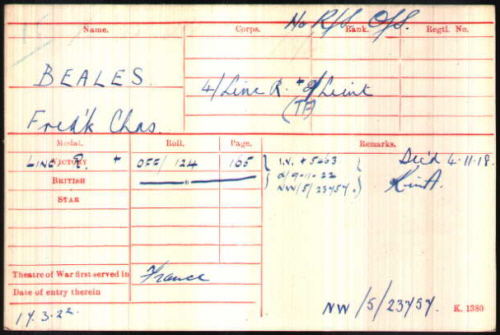 No R/S. Offs.
Name. Corps. Rank. Regtl. No.
BEALES.
Fred'k Chas.
4/Linc R. + 2/Lieut
(TF)
Medal. Roll. Page. Remarks.
VICTORY Linc R. + OFF/124 165 I.V. + 5663 Died 4-11-18.
BRITISH d/9-11-22 KinA.
NW/5/23757.
STAR
Theatre of War first served in France
Date of entry therein
17.3.22. NW/5/23757. K. 1380